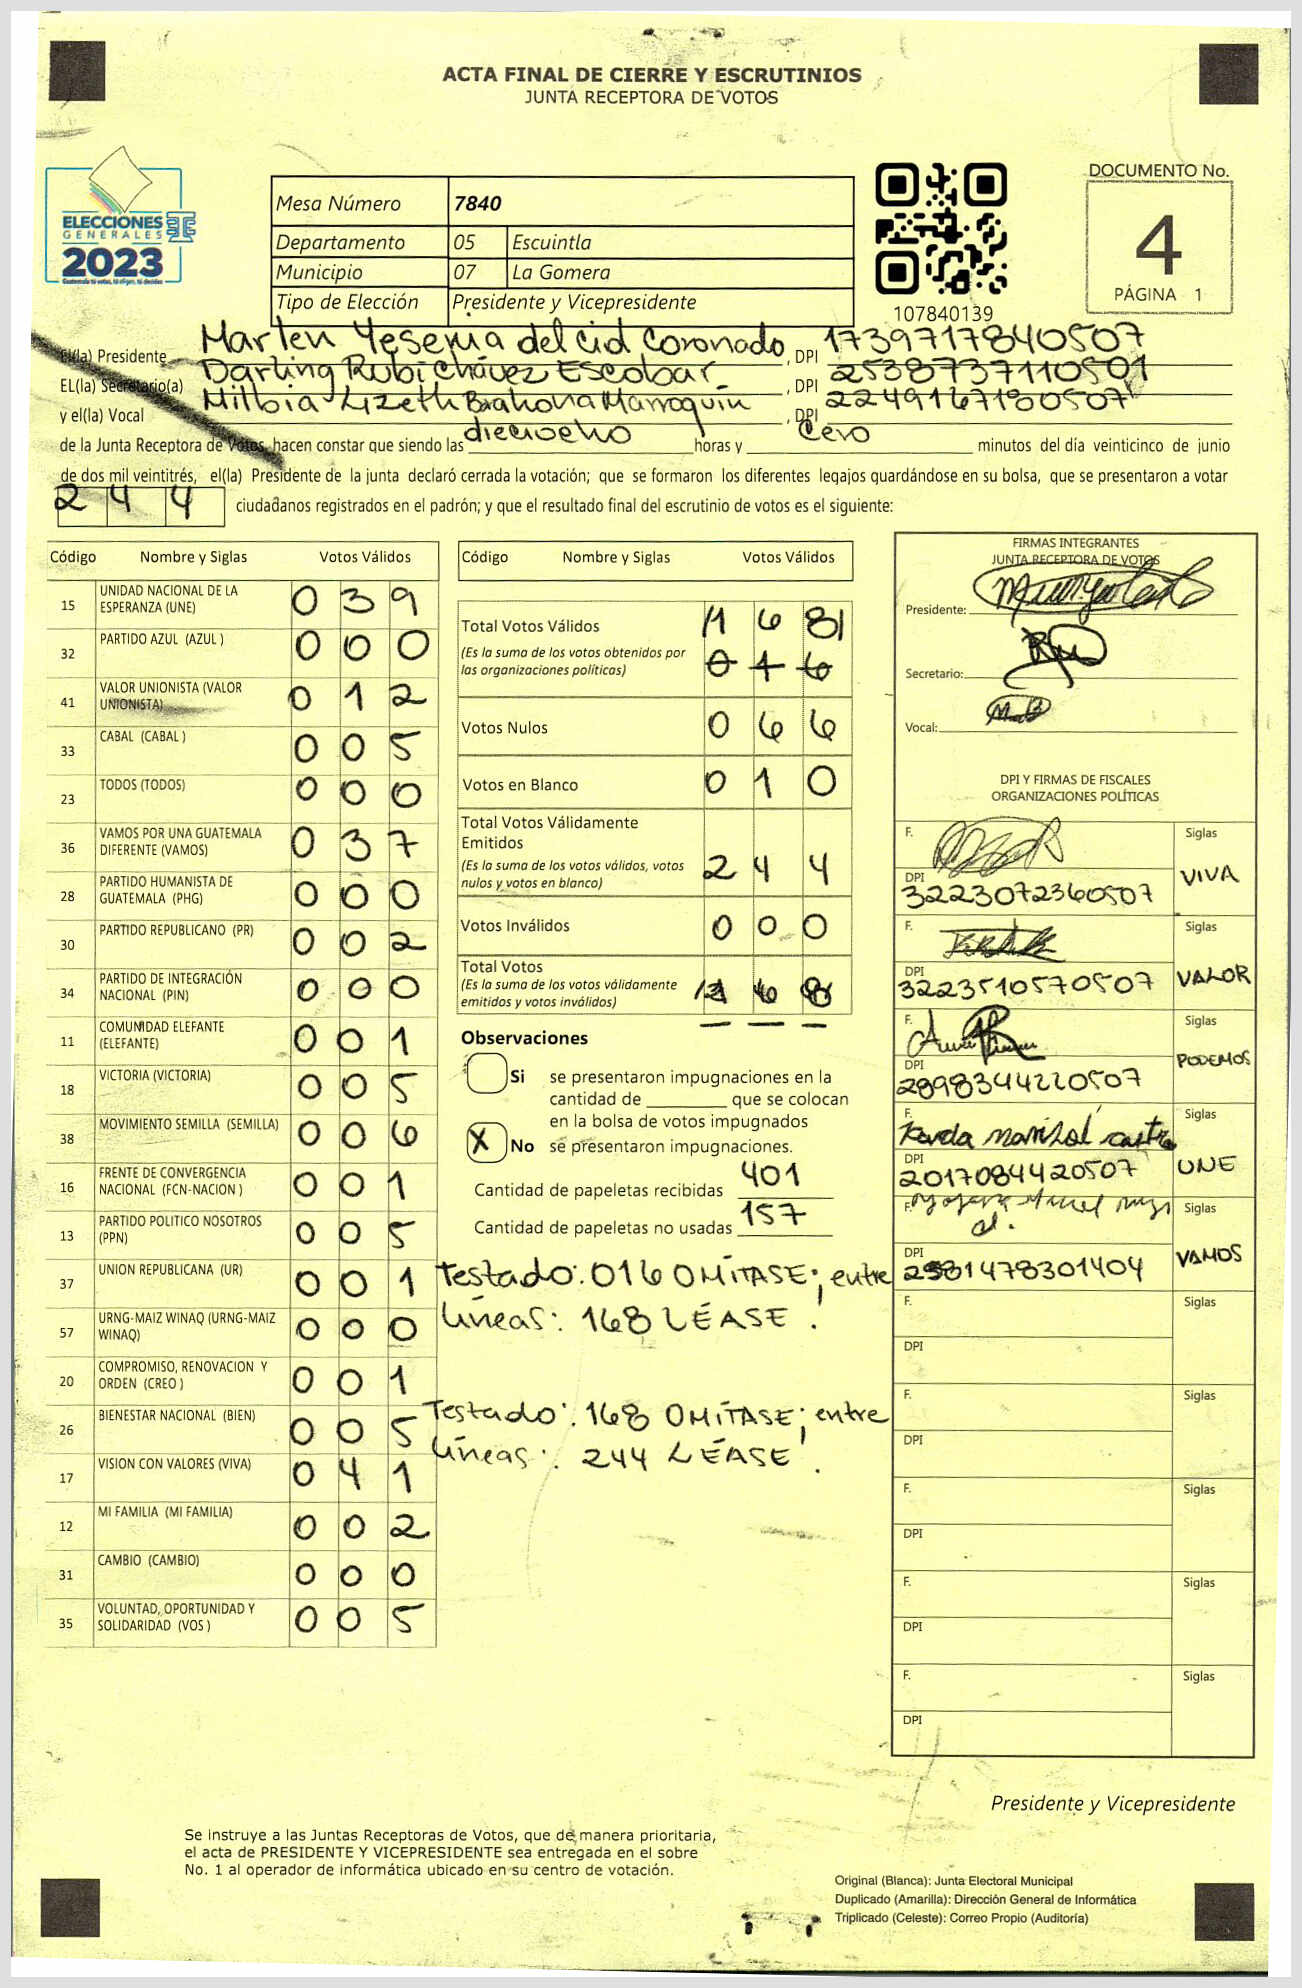 ACTA FINAL DE CIERRE Y ESCRUTINIOS
JUNTA RECEPTORA DE VOTOS
ELECCIONES
GENERALES
2023
Mesa Número 7840
Departamento 05 Escuintla
Municipio 07 La Gomera
Tipo de Elección Presidente y Vicepresidente
107840139
DOCUMENTO No.
4
PÁGINA 1
El(la) Presidente Marlen Yesenia del cid Coronado, DPI 1739717840507
EL(la) Secretario(a) Darling Rubi Chávez Escobar, DPI 2538737110501
y el(la) Vocal Lizeth Barahona Marroquin, DPI 2249167180507
de la Junta Receptora de Votos, hacen constar que siendo las dieciocho horas y Cero minutos del día veinticinco de junio
de dos mil veintitrés, el(la) Presidente de la junta declaró cerrada la votación; que se formaron los diferentes legajos guardándose en su bolsa, que se presentaron a votar
244 ciudadanos registrados en el padrón; y que el resultado final del escrutinio de votos es el siguiente:
Código Nombre y Siglas Votos Válidos
15 UNIDAD NACIONAL DE LA ESPERANZA (UNE) 039
32 PARTIDO AZUL (AZUL ) 000
41 VALOR UNIONISTA (VALOR UNIONISTA) 012
33 CABAL (CABAL ) 005
23 TODOS (TODOS) 000
36 VAMOS POR UNA GUATEMALA DIFERENTE (VAMOS) 037
28 PARTIDO HUMANISTA DE GUATEMALA (PHG) 000
30 PARTIDO REPUBLICANO (PR) 002
34 PARTIDO DE INTEGRACIÓN NACIONAL (PIN) 000
11 COMUNIDAD ELEFANTE (ELEFANTE) 001
18 VICTORIA (VICTORIA) 005
38 MOVIMIENTO SEMILLA (SEMILLA) 006
16 FRENTE DE CONVERGENCIA NACIONAL (FCN-NACION ) 001
13 PARTIDO POLITICO NOSOTROS (PPN) 005
37 UNION REPUBLICANA (UR) 001
57 URNG-MAIZ WINAQ (URNG-MAIZ WINAQ) 000
20 COMPROMISO, RENOVACION Y ORDEN (CREO ) 001
26 BIENESTAR NACIONAL (BIEN) 005
17 VISION CON VALORES (VIVA) 041
12 MI FAMILIA (MI FAMILIA) 002
31 CAMBIO (CAMBIO) 000
35 VOLUNTAD, OPORTUNIDAD Y SOLIDARIDAD (VOS ) 005
Código Nombre y Siglas Votos Válidos
Total Votos Válidos 168
(Es la suma de los votos obtenidos por
las organizaciones políticas) 016
Votos Nulos 066
Votos en Blanco 010
Total Votos Válidamente
Emitidos
(Es la suma de los votos válidos, votos
nulos y votos en blanco) 244
Votos Inválidos 000
Total Votos
(Es la suma de los votos válidamente
emitidos y votos inválidos) 168
Observaciones
Si se presentaron impugnaciones en la
cantidad de ________ que se colocan
en la bolsa de votos impugnados
X No se presentaron impugnaciones.
Cantidad de papeletas recibidas 401
Cantidad de papeletas no usadas 157
Testado: 016 OMÍTASE; entre
líneas: 168 LÉASE!
Testado: 168 OMÍTASE; entre
líneas: 244 LÉASE!
FIRMAS INTEGRANTES
JUNTA RECEPTORA DE VOTOS
Presidente:
Secretario:
Vocal:
DPI Y FIRMAS DE FISCALES
ORGANIZACIONES POLÍTICAS
F. Siglas
DPI 3223072360507 VIVA
F. Siglas
DPI 3223510570507 VALOR
F. Siglas
DPI 2898344220507 PODEMOS
F. Siglas
DPI 2017084420507 UNE
F. Siglas
DPI 2581478301404 VAMOS
F. Siglas
DPI
F. Siglas
DPI
F. Siglas
DPI
F. Siglas
DPI
F. Siglas
DPI
Presidente y Vicepresidente
Se instruye a las Juntas Receptoras de Votos, que de manera prioritaria,
el acta de PRESIDENTE Y VICEPRESIDENTE sea entregada en el sobre
No. 1 al operador de informática ubicado en su centro de votación.
Original (Blanca): Junta Electoral Municipal
Duplicado (Amarilla): Dirección General de Informática
Triplicado (Celeste): Correo Propio (Auditoría)